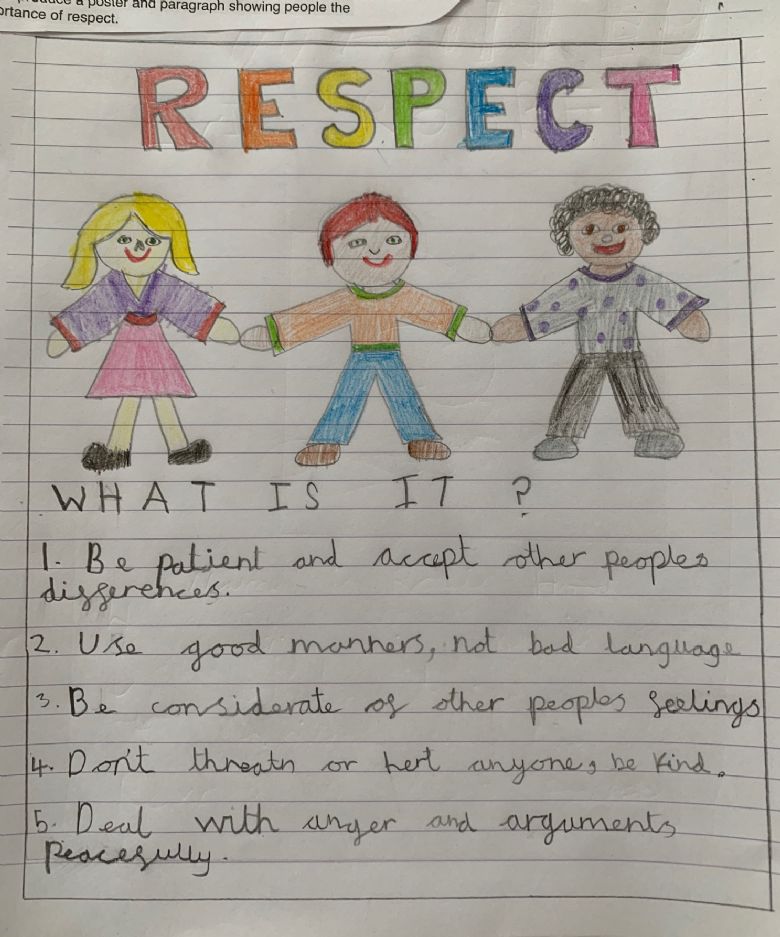 a poster and paragraph showing people the
ortance of respect.
RESPECT
WHAT IS IT ?
1. Be patient and accept other peoples
differences.
2. Use good manners, not bad language
3. Be considerate of other peoples feelings
4. Don't threatn or hert anyone, be kind.
5. Deal with anger and arguments
peacefully.